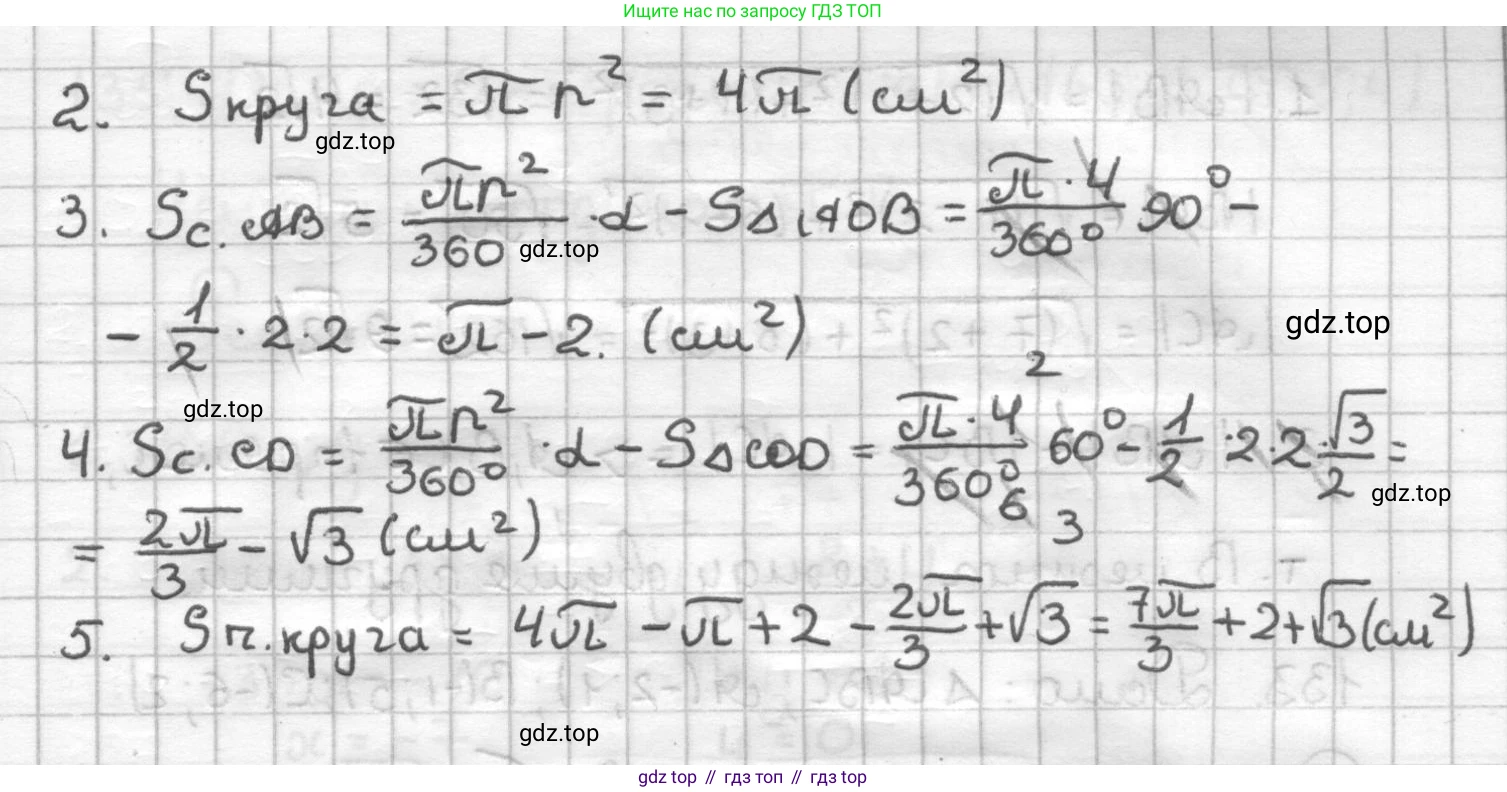 Ищите нас по запросу ГДЗ ТОП
2. Sкруга = πr² = 4π (см²)
gdz.top
3. Sс. AB = πr²/360 · α - S△AOB = π·4/360° 90° -
gdz.top
- 1/2 · 2·2 = π - 2. (см²)
gdz.top
gdz.top
4. Sс. CD = πr²/360° · α - S△COD = π·4/360° 60° - 1/2 · 2·2·√3/2 =
2
6
3
gdz.top
= 2π/3 - √3 (см²)
5. Sп.круга = 4π - π + 2 - 2π/3 + √3 = 7π/3 + 2 + √3 (см²)
gdz.top
gdz top // гдз топ // gdz top